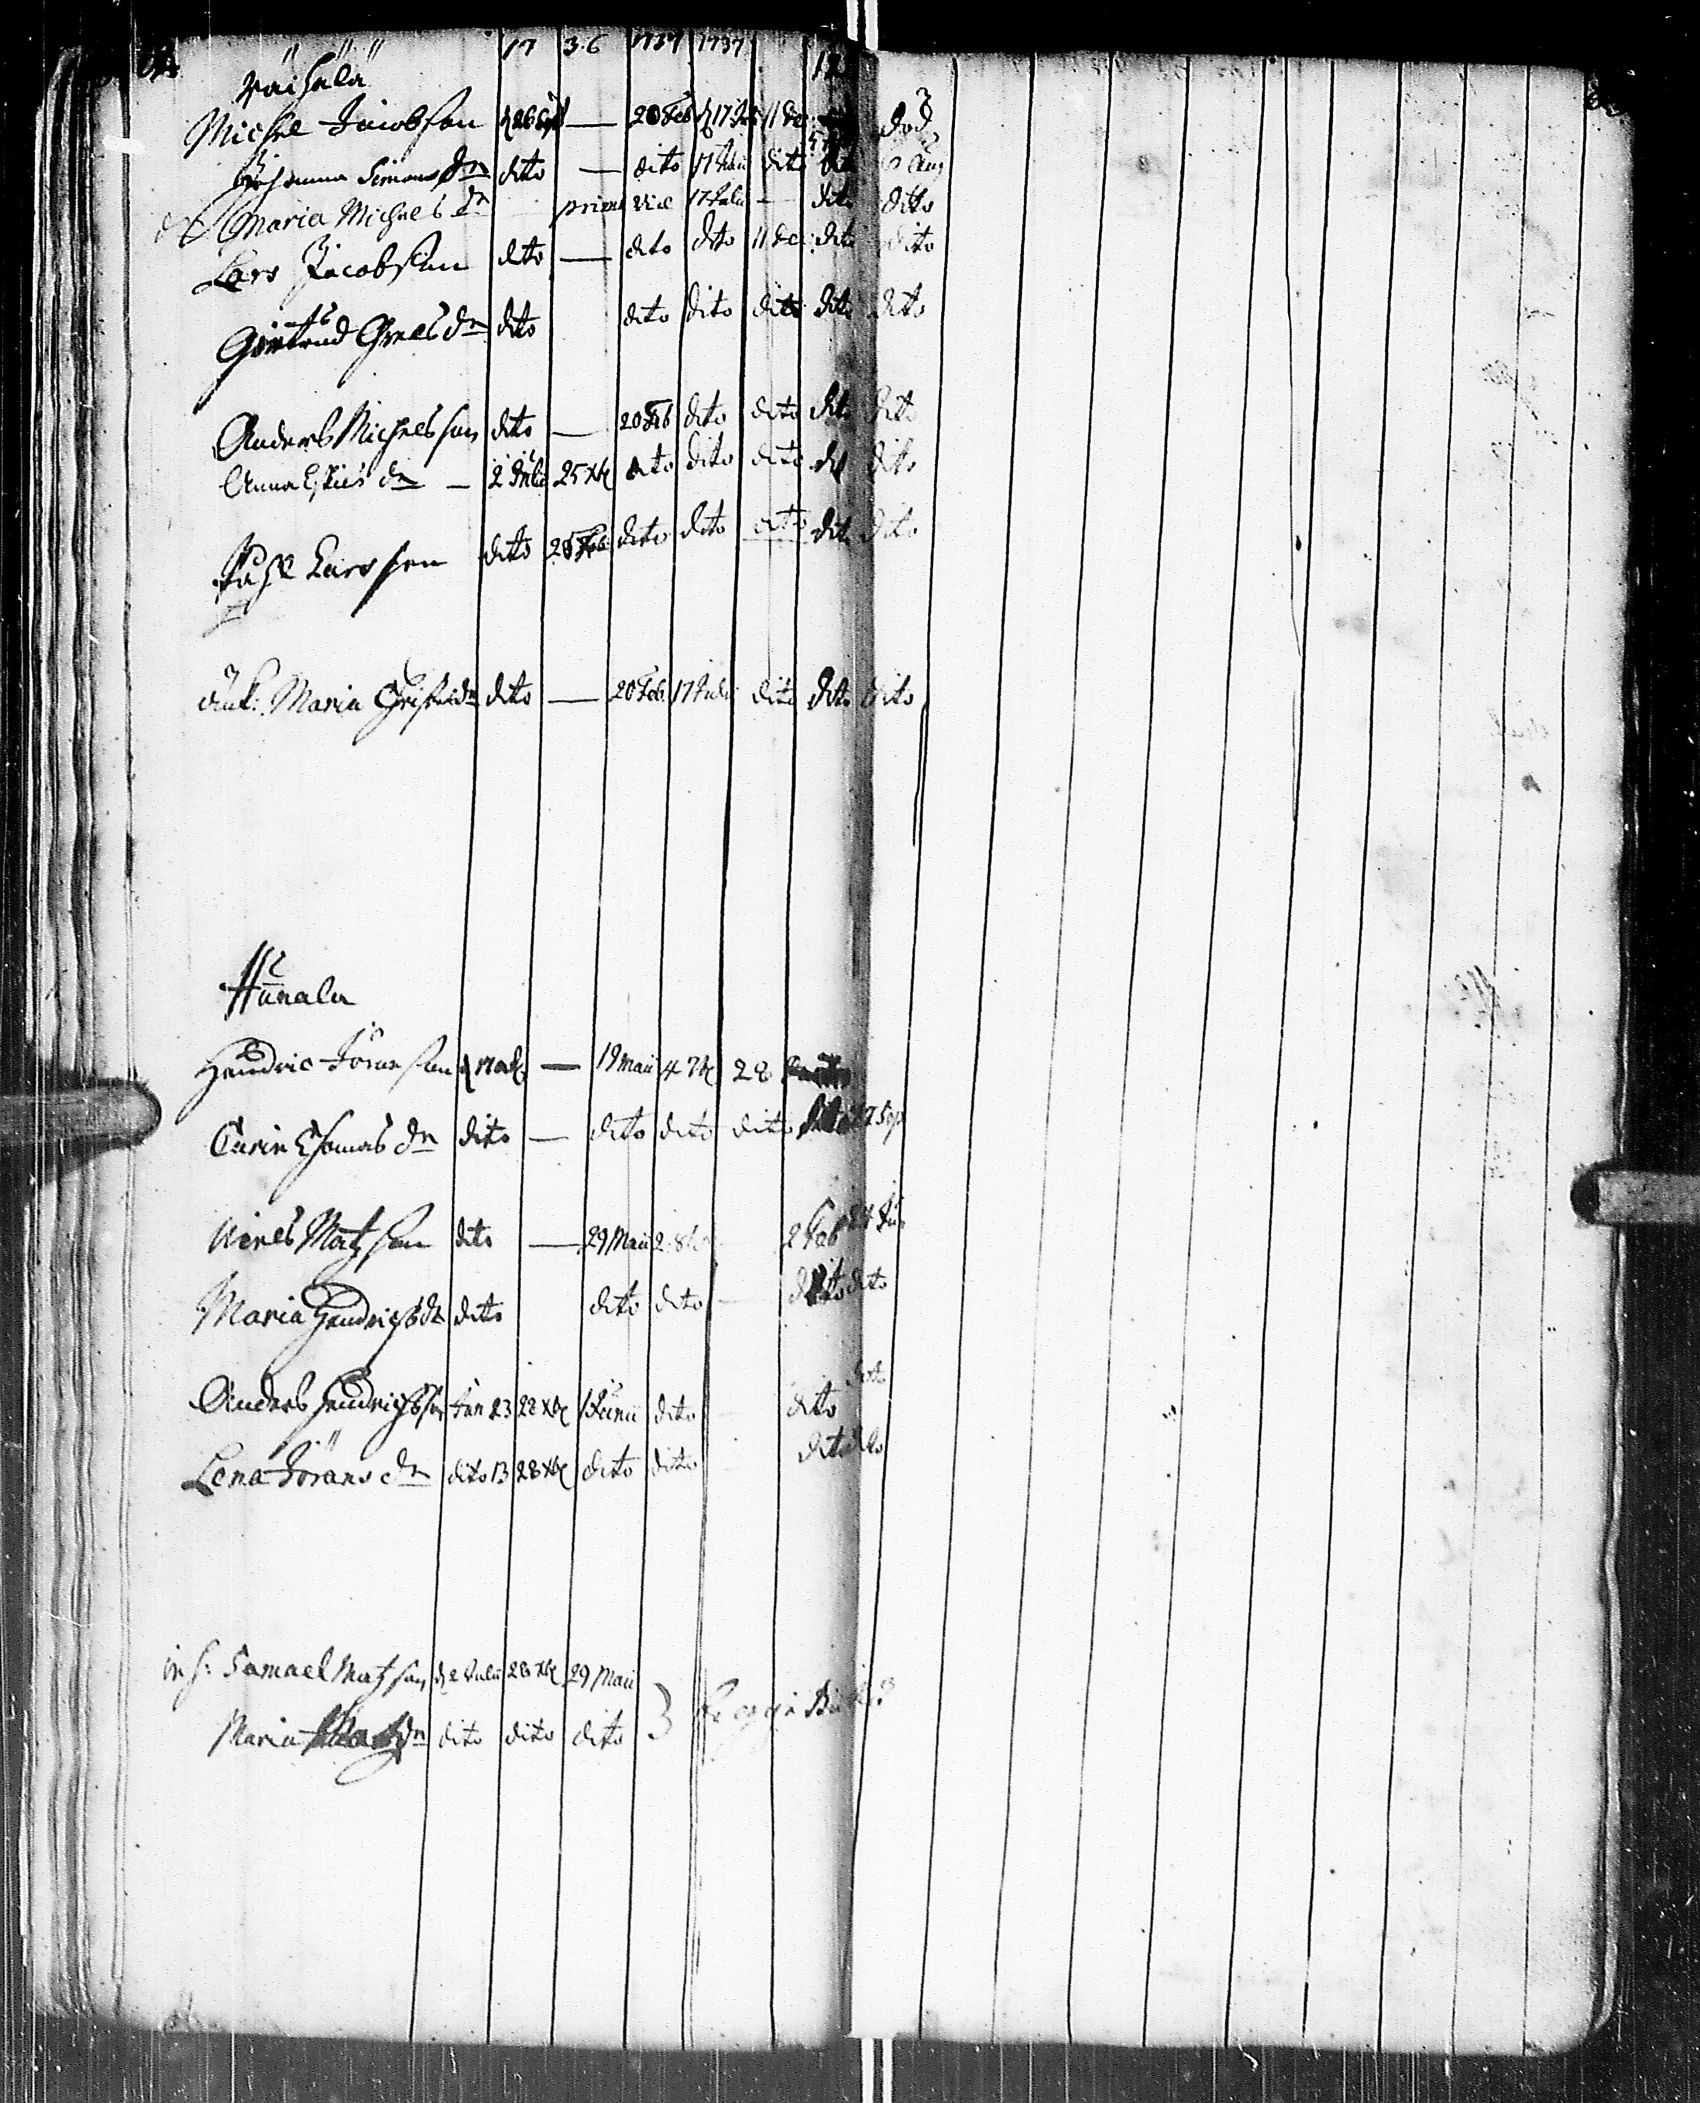 17 36 1737 1737
Räihälä
Michel Jacobsson d 26 Sept — 20 Feb d 17 Jul 11 dec död
Johanna Simons dr dito — dito 17 Julii dito dito Aug
Maria Michels dr prima vice 17 Julii — dito dito
Lars Jacobsson dito — dito dito 11 dec dito dito
Giertrud Greels dr dito dito dito dito dito dito
Anders Michelsson dito — 20 Feb dito dito dito dito
Anna Eskils dr — 2 Julii 25 Xbr dito dito dito dito dito
Påhl Larsson dito 28 Feb dito dito dito dito dito
änk: Maria Christers dr dito — 20 Feb 17 Julii dito dito dito
Hunala
Hendric Jöransson d 17 octb — 19 Maii 4 Xbr 28
Carin Thomas dr dito — dito dito dito dito 27 Sep
Niels Matsson dito — 29 Maii 28 2 Feb 24
Maria Hendrichs dr dito dito dito — dito dito
Anders Hendrichsson Jan 23 28 Xbr 1 Junii dito dito dito
Lena Jörans dr dito 13 28 Xbr dito dito dito dito
inh: Samuel Matsson d 2 Julii 28 Xbr 29 Maii
Maria dr dito dito dito